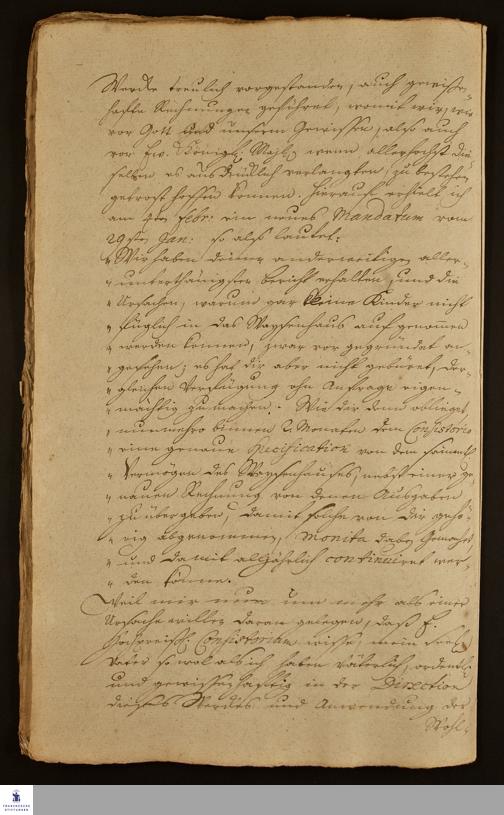 Wercke treulich vorgestanden, auch gewissen-
haffte Rechnungen geführet, womit wir, wie
vor Gott und unserm Gewissen, also auch
vor Ew. Königl. Majt. wenn allerhöchst die-
selben es ausdrücklich verlangten, zu bestehen
getrost hoffen können. Hierauf erhielt ich
am 4ten Febr: ein neues Mandatum vom
29sten Jan: so also lautet:
" Wir haben deinen anderweitigen aller-
" unterthänigsten Bericht erhalten, und die
" Ursachen, warum gar kleine Kinder nicht
" füglich in das Waysenhaus aufgenommen
" werden können, zwar vor gegründet an-
" gesehen; es hat dir aber nicht gebüret, der-
" gleichen Verfügung ohn Anfrage eigen-
" mächtig zu machen. Wie dir denn oblieget,
" nunmehro binnen 2 Monaten dem Consistorio
" eine genaue Specification von dem sämtl.
" Vermögen des Waysenhauses, nebst einer ge-
" nauen Rechnung von denen Ausgaben
" zu übergeben, damit solche von dir gehö-
" rig abgenommen, Monita dabey gemacht
" und damit alljährlich continuiret wer-
" den könne.
Weil mir nun um mehr als einer
Ursache willen daran gelegen, daß E.
Hochpreißl. Consistorium wisse, mein seel.
Vater so wol als ich haben väterlich, ordentl.
und gewissenhafftig in der Direction
dieses Werckes und Anwendung der
Wohl-
FRANCKESCHE
STIFTUNGEN